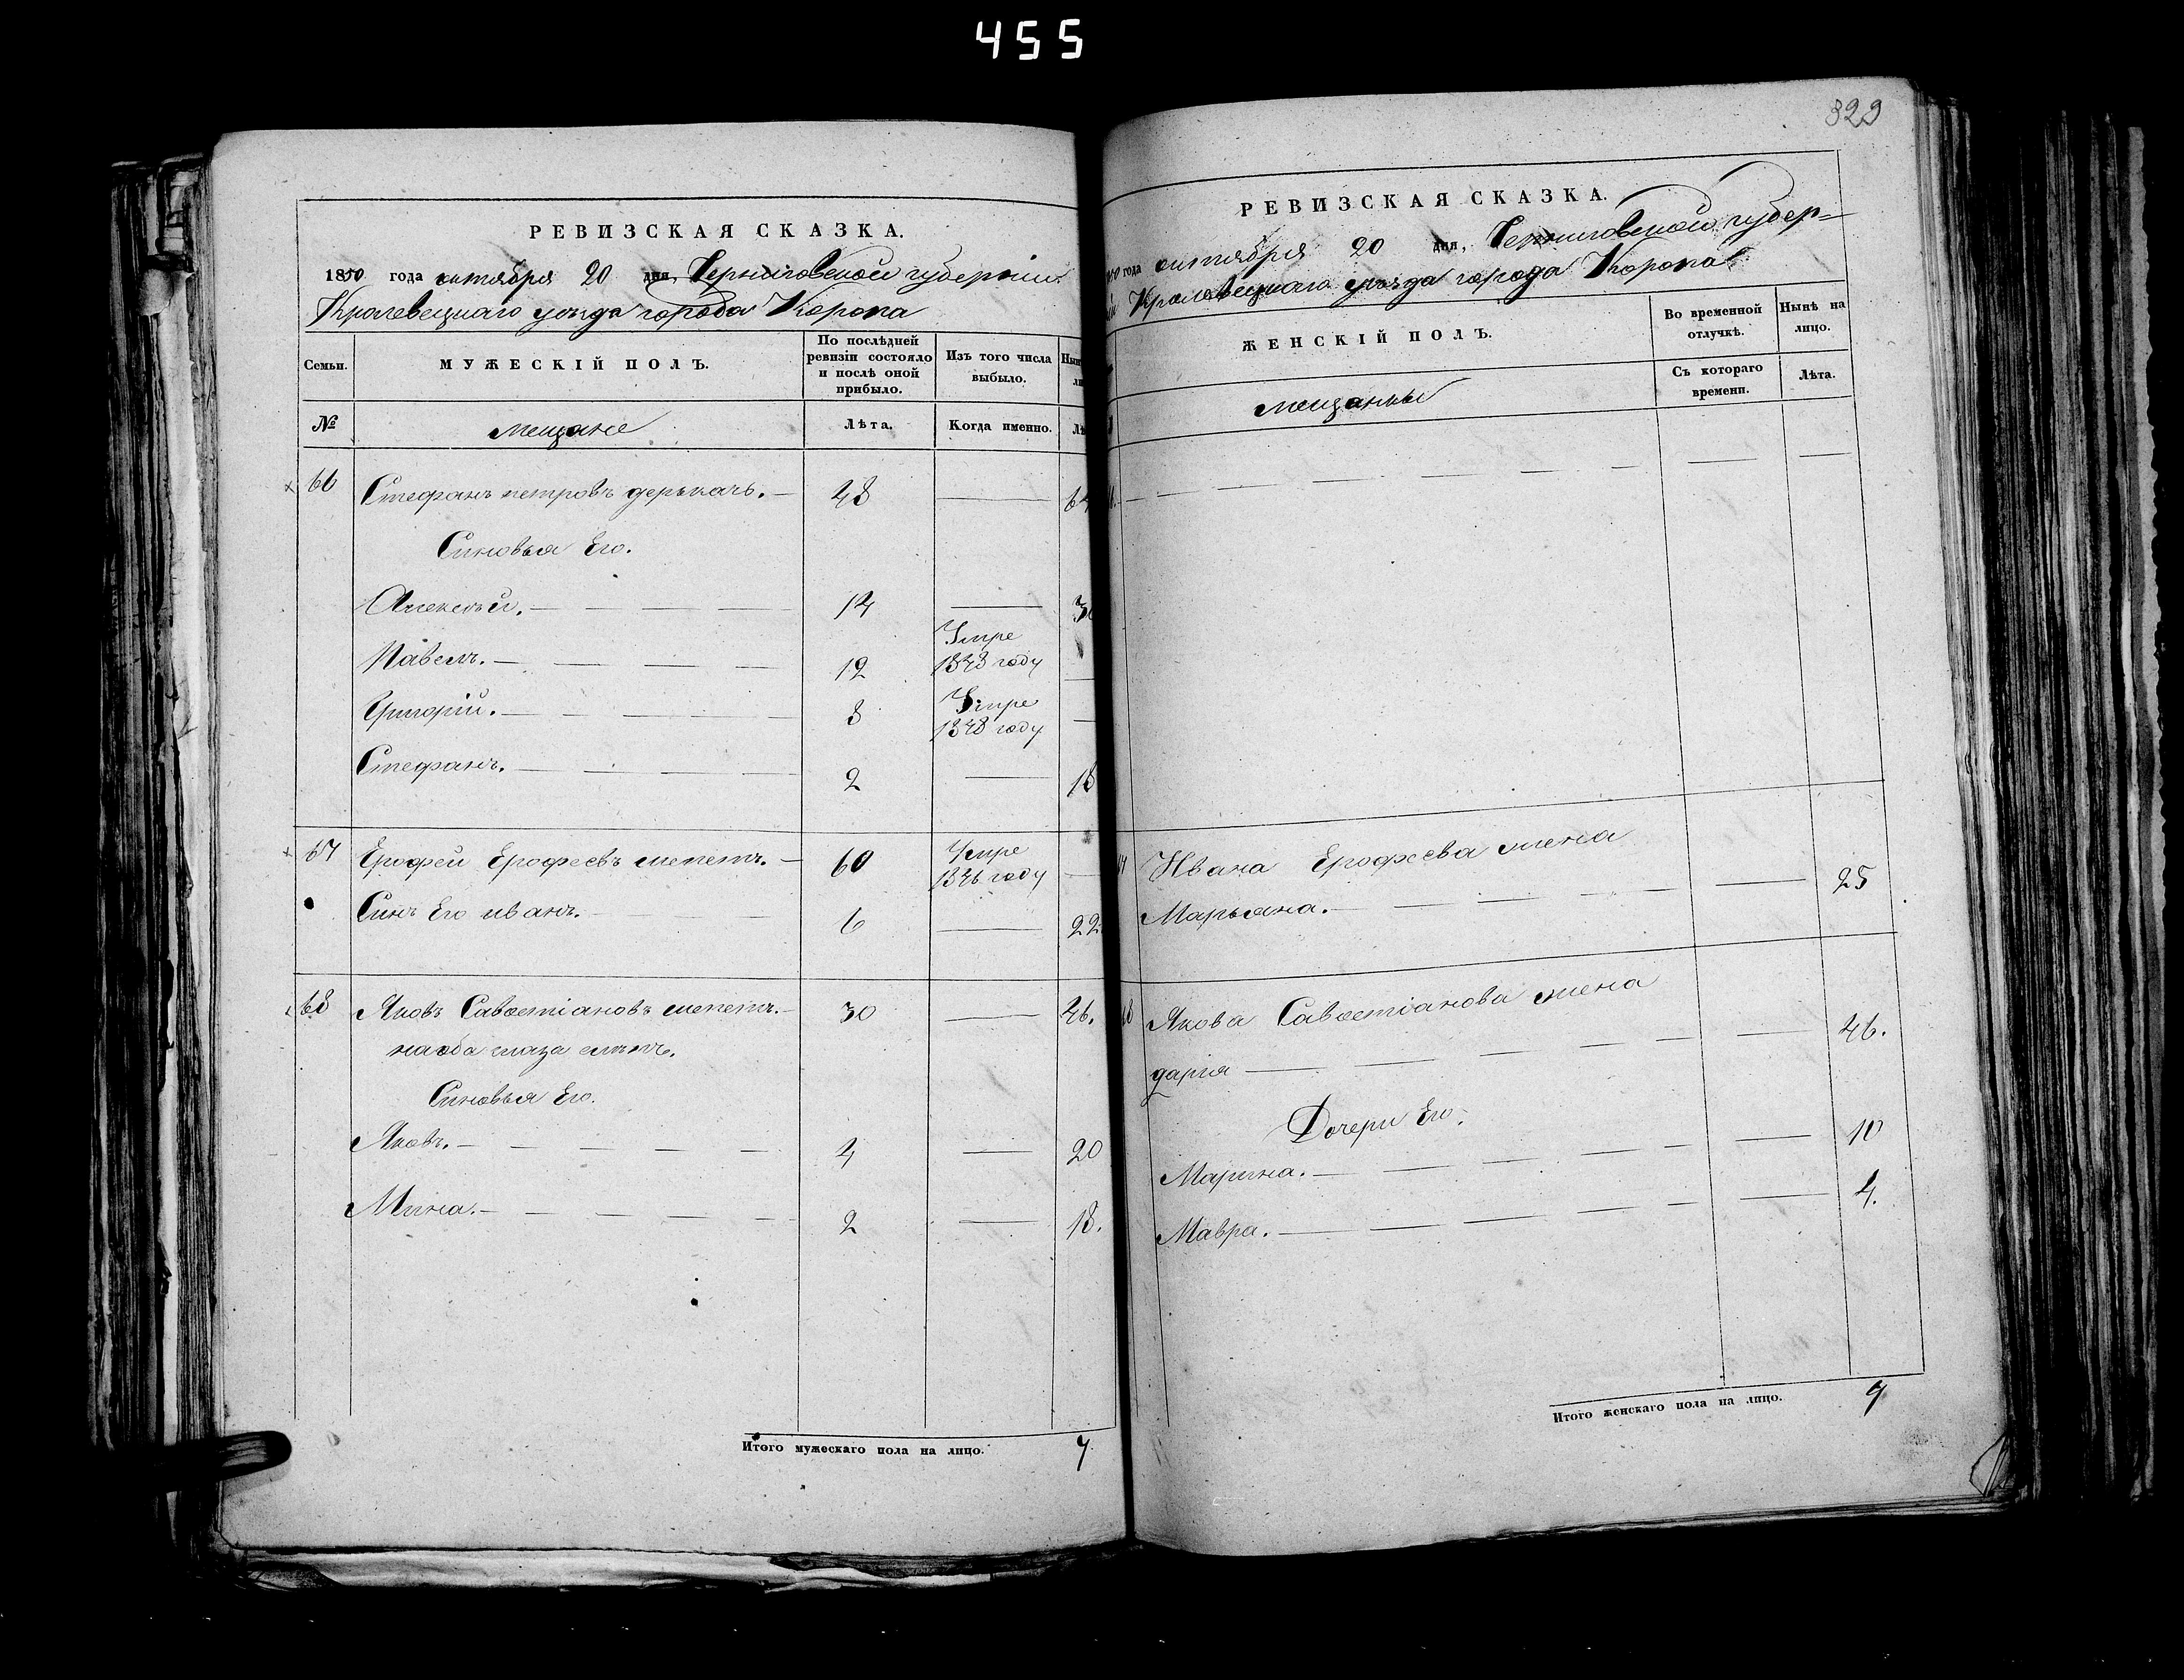 455
329
РЕВИЗСКАЯ СКАЗКА.
1850 года октября 20 дня, Черниговской губерніи
Кролевецкаго уѣзда города Коропа
Семьи.
МУЖЕСКІЙ ПОЛЪ.
По послѣдней ревизіи состояло и послѣ оной прибыло.
Изъ того числа выбыло.
№
мещане
Лѣта.
Когда именно.
66 Стефанъ петровъ деркачь. 48 — 64
Синовья Его.
Алексѣй. 14 — 30
Умре
Павелъ. 12 1848 году
Умре
Григорій. 8 1848 году
Стефанъ. 2 — 18
67 Ерофей Ерофеевъ шепетъ. 60 Умре 1846 году
Синъ Его иванъ. 6 — 22
68 Яковъ Савостіановъ шепетъ. 30 — 46.
на оба глаза слѣпъ.
Синовья Его.
Яковъ. 4 — 20
Мина. 2 — 18.
Итого мужескаго пола на лицо. 7
РЕВИЗСКАЯ СКАЗКА.
года октября 20 дня, Черниговской губер=
Кролевецкаго уѣзда города Коропа
ЖЕНСКІЙ ПОЛЪ.
Во временной отлучкѣ.
Нынѣ на лицо.
мещанки
Съ котораго времени.
Лѣта.
Ивана Ерофеева жена
Марьяна. — 25
Якова Савостіанова жена
дария — 46.
Дочери Его.
Марина. — 10
Мавра. — 4.
Итого женскаго пола на лицо. 4